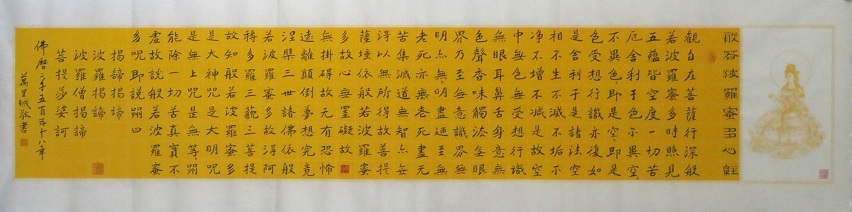 般若波羅蜜多心經
觀自在菩薩行深般
若波羅蜜多時照見
五蘊皆空度一切苦
厄舍利子色不異空
不異色即是空即是
色受想行識亦復如
是舍利子是諸法空
相不生不滅不垢不
淨不增不減是故空
中無色無受想行識
無眼耳鼻舌身意無
色聲香味觸法無眼
界乃至無意識界無
明亦無明盡乃至無
老死亦無老死盡無
苦集滅道無智亦無
得以無所得故菩提
薩埵依般若波羅蜜
多故心無罣礙故
無掛碍故無有恐怖
遠離顛倒夢想究竟
涅槃三世諸佛依般
若波羅蜜多故得阿
耨多羅三藐三菩提
故知般若波羅蜜多
是大神咒是大明咒
是無上咒是無等咒
能除一切苦真實不
虛故說般若波羅蜜
多咒即說咒曰
揭諦揭諦
波羅揭諦
波羅僧揭諦
菩提莎婆訶
佛曆二千五百五十八年
敬書